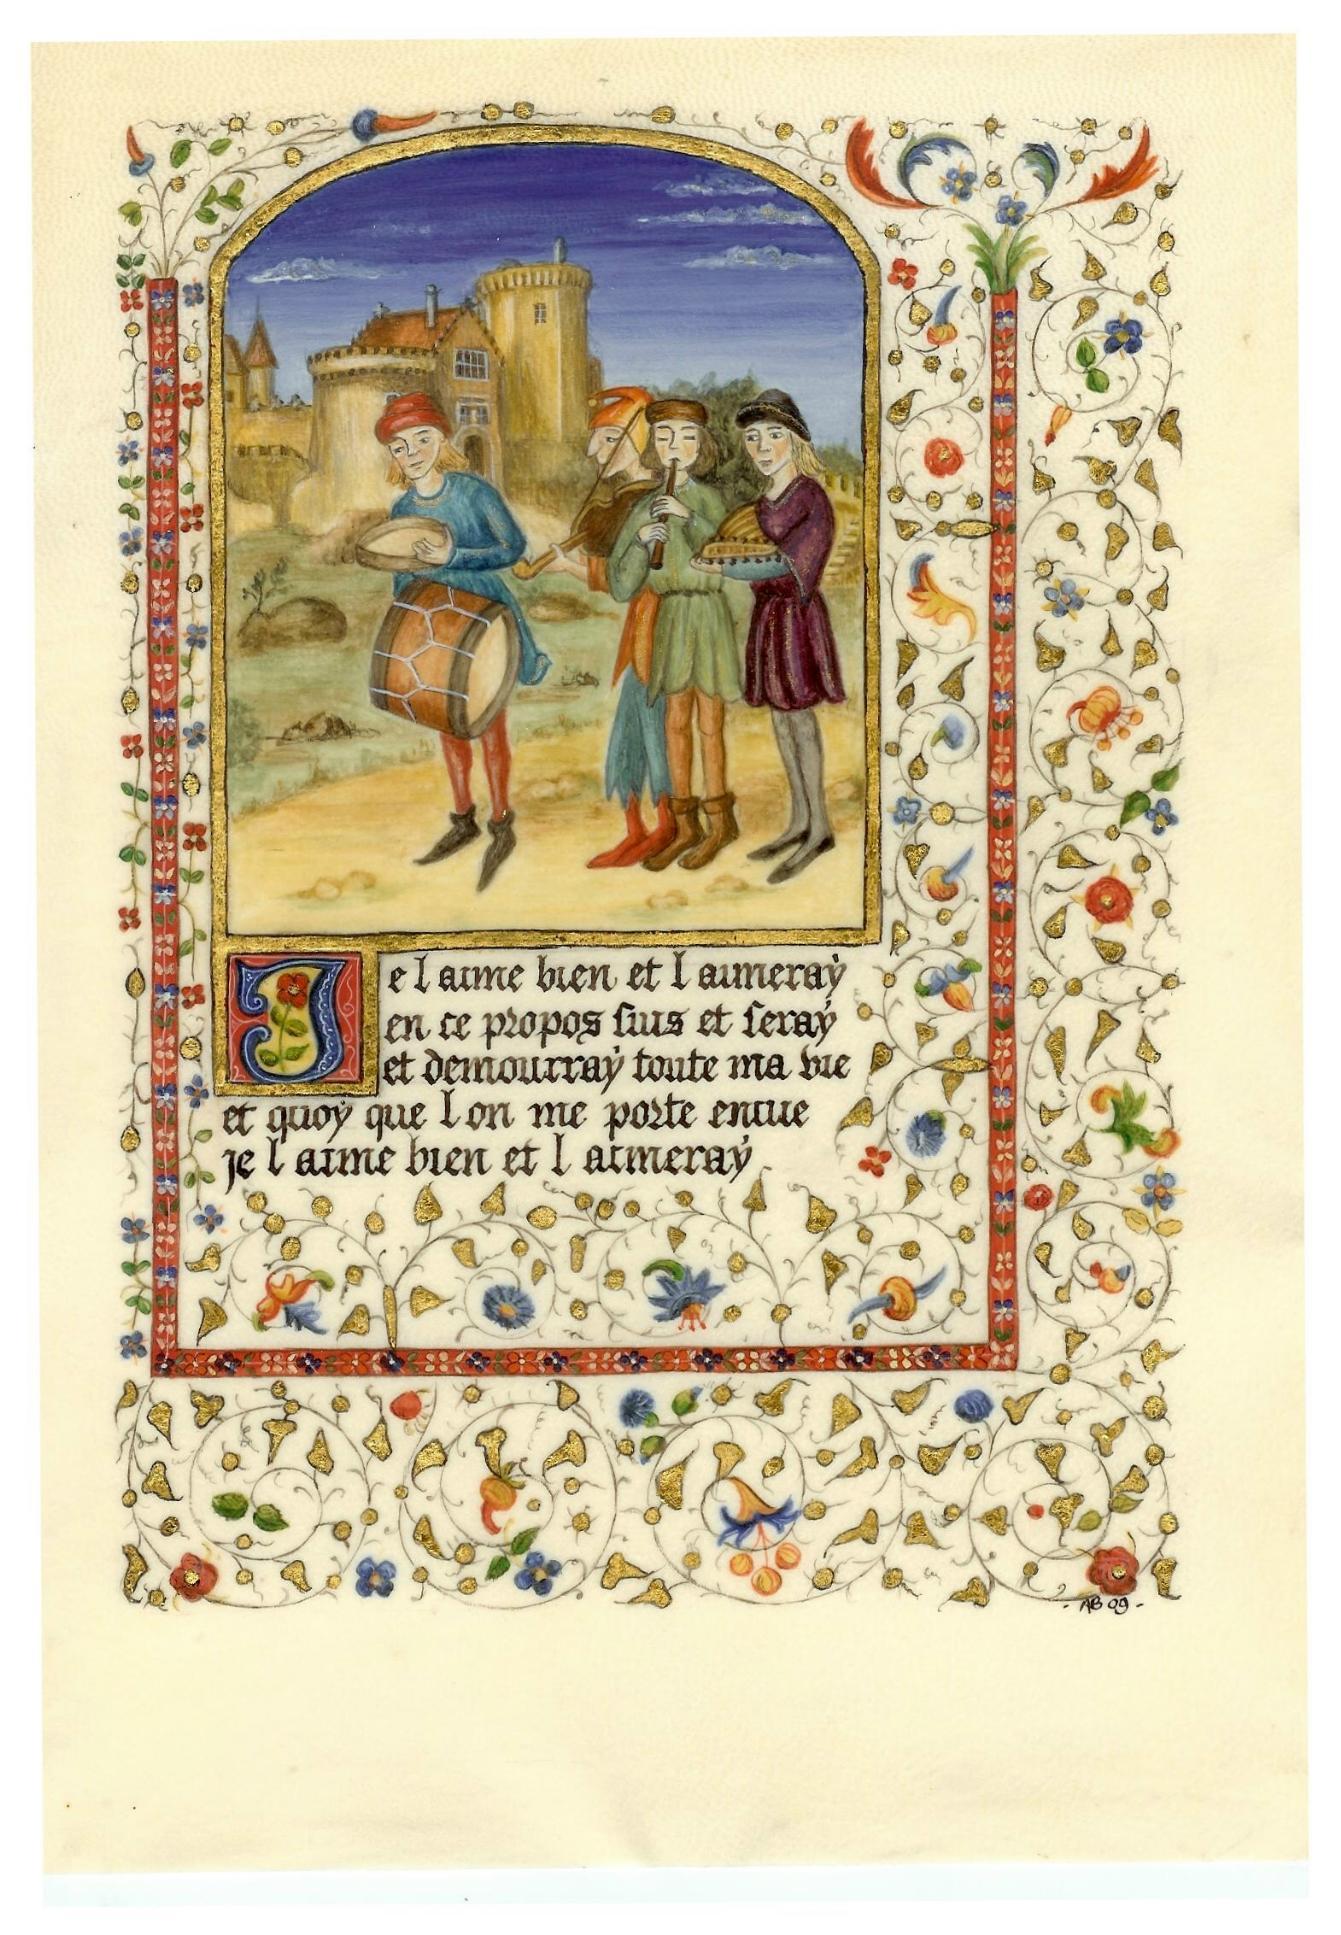 Je l aime bien et l aimeray
en ce propos suis et seray
et demourray toute ma vie
et quoy que l on me porte envie
je l aime bien et l aimeray
- AB 09 -